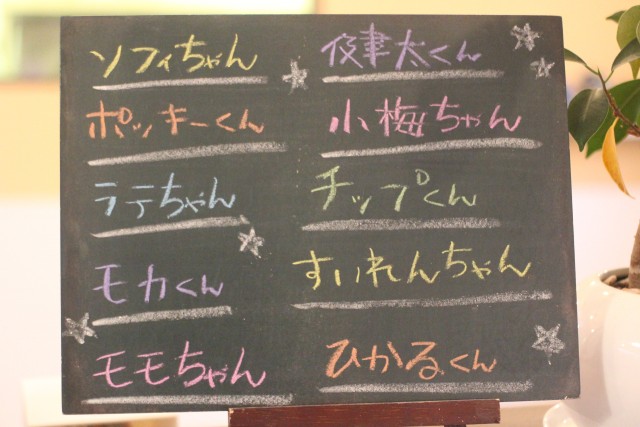 ソフィちゃん
ポッキーくん
ラテちゃん
モカくん
モモちゃん
太くん
小梅ちゃん
チップくん
すいれんちゃん
ひかるくん